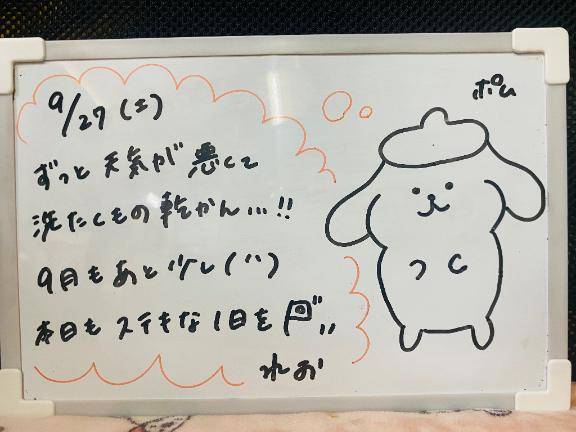 9/27(土)
ポム
ずっと天気が悪くて
洗たくもの乾かん…!!
9月もあと少し(¨)
本日もステキな1日を
れお